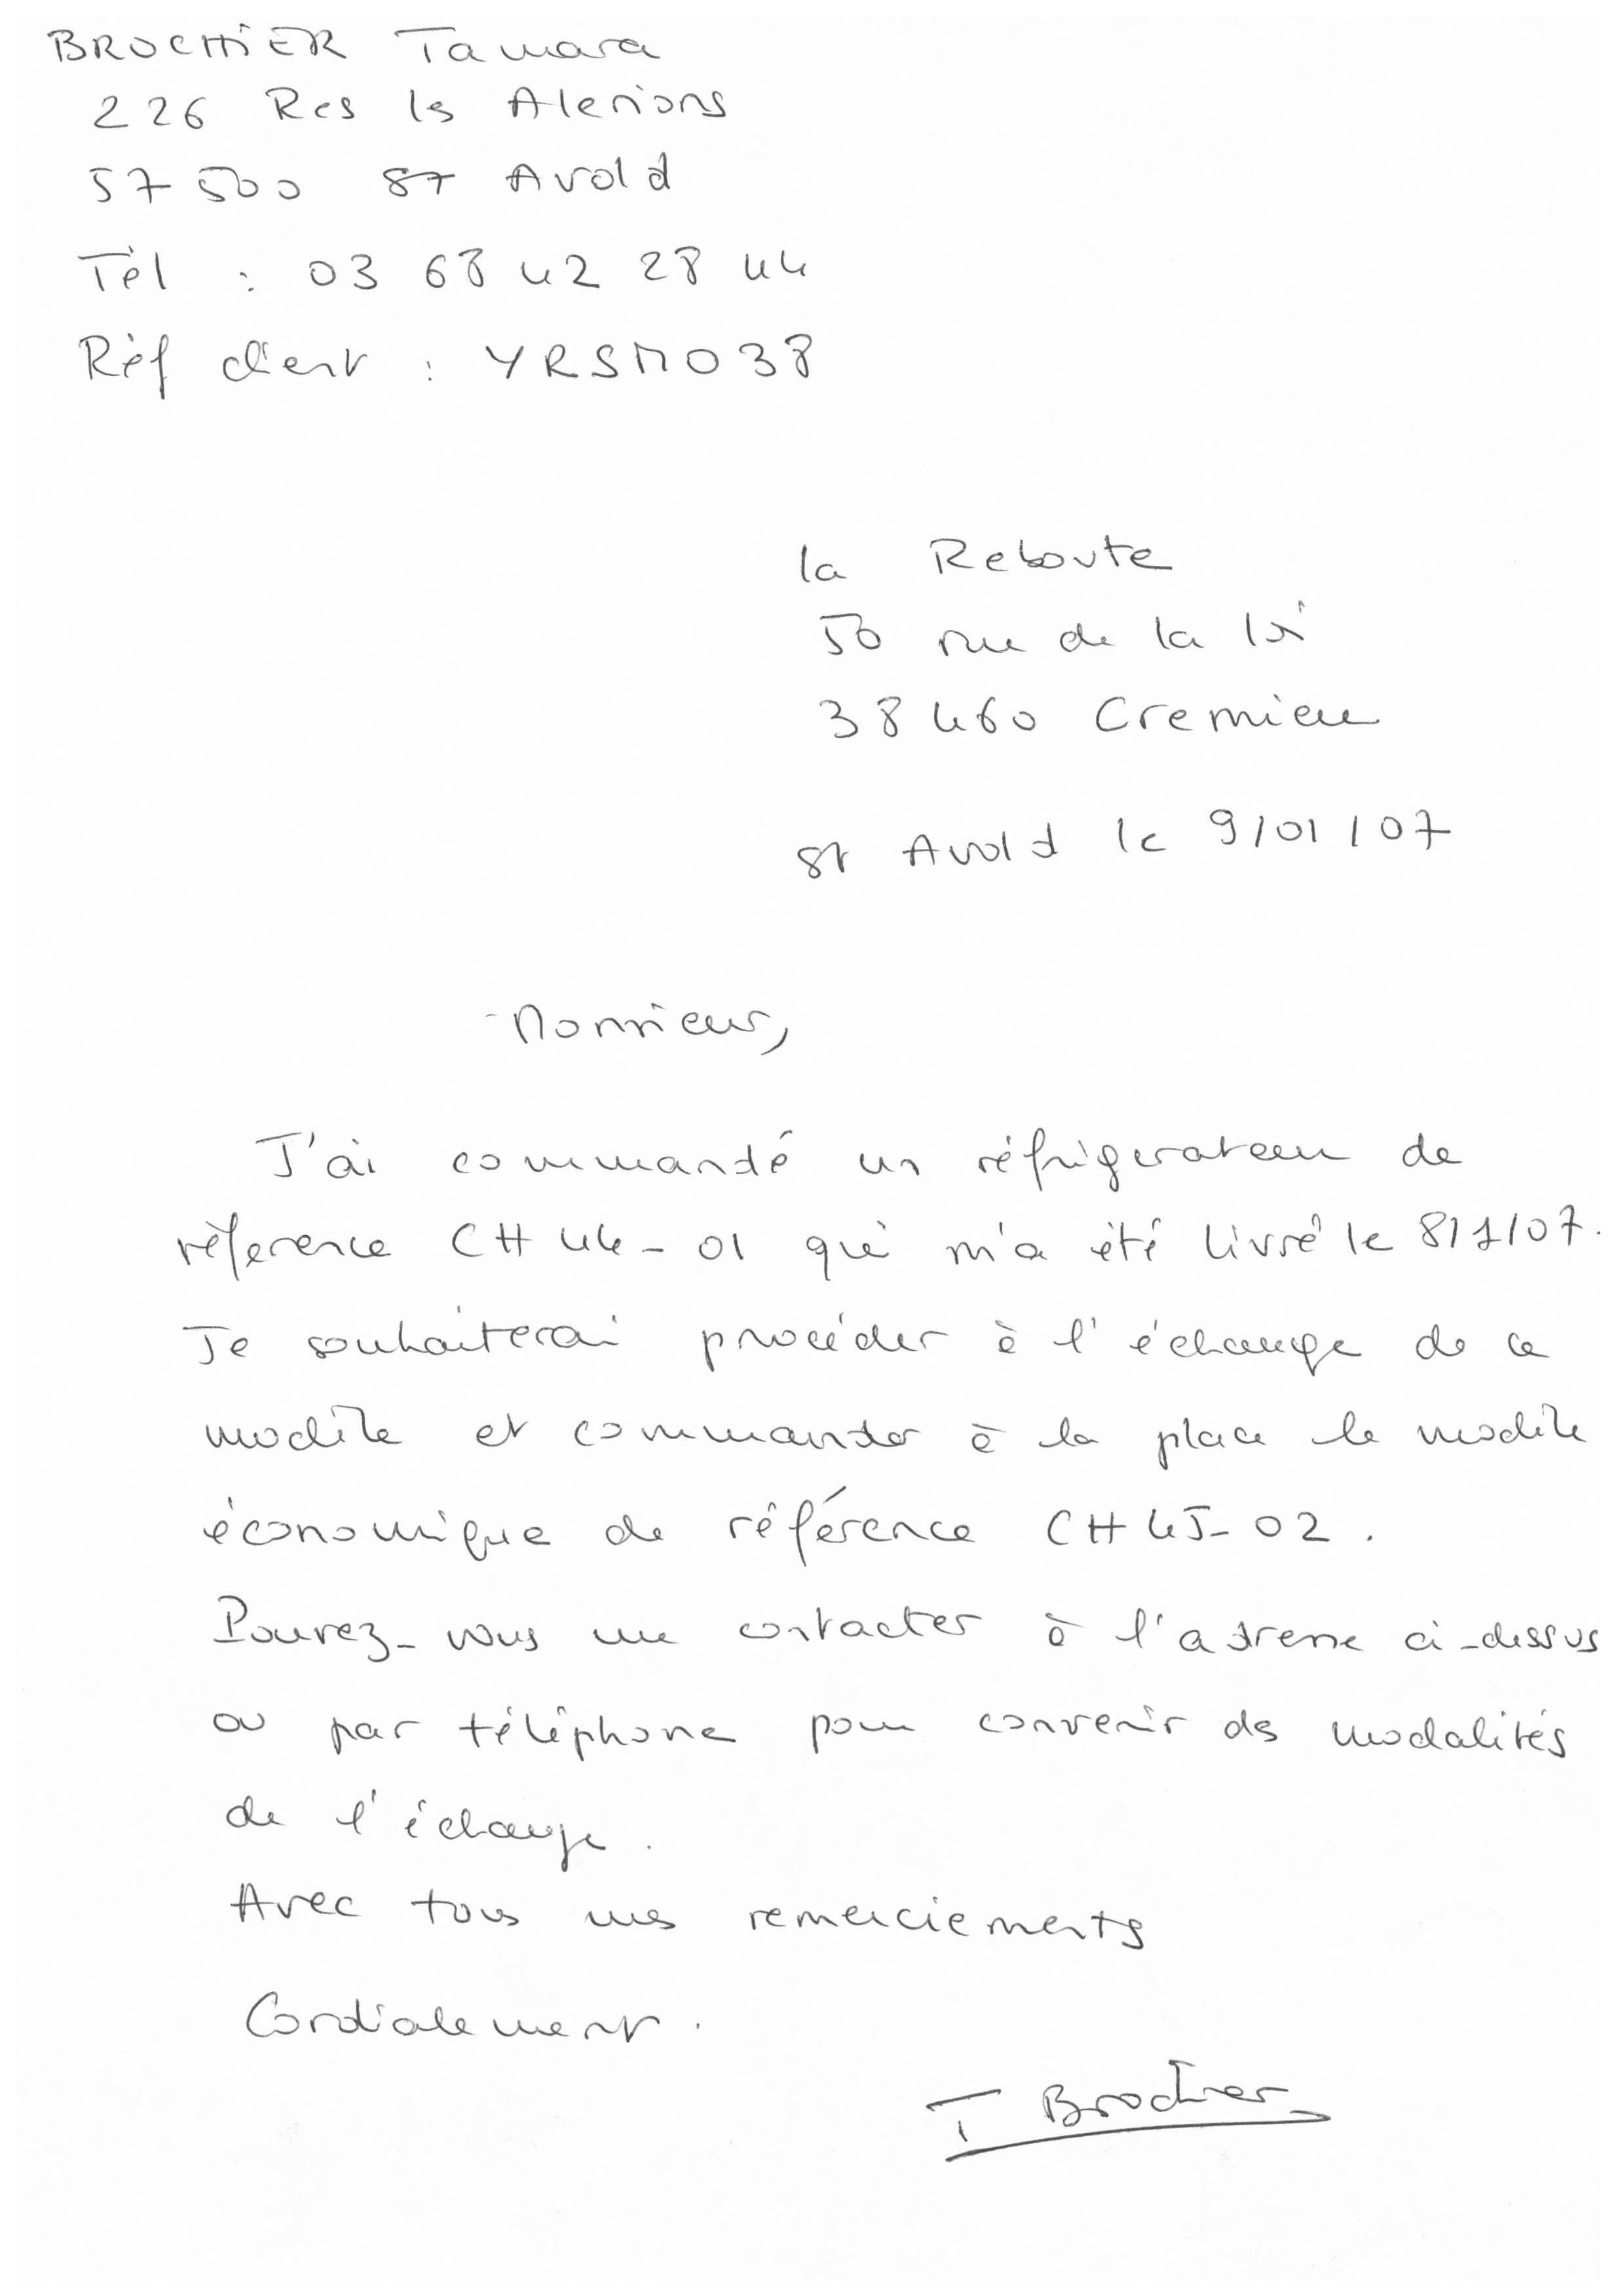 BROCHIER Tamara
226 Res les Alerions
57500 St Avold
Tél : 03 68 42 28 44
Réf client : YRSMO38
la Reboute
50 rue de la loi
38460 Cremieu
St Avold le 9/01/07
Monsieur,
J'ai commandé un réfrigerateur de
réference CH44-01 qui m'a été livré le 8/1/07.
Je souhaiterai procéder à l'échange de ce
modèle et commander à la place le modèle
économique de référence CH45-02.
Pouvez-vous me contacter à l'adresse ci-dessus
ou par téléphone pour convenir des modalités
de l'échange.
Avec tous mes remerciements
Cordialement.
T Brochier